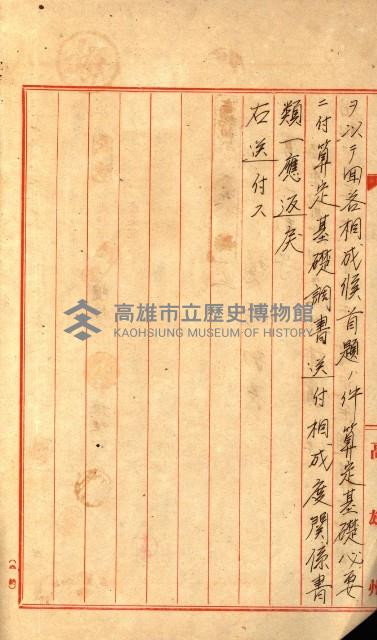 ヲ以テ回答相成候首題ノ件算定基礎必要
ニ付算定基礎調書送付相成度関係書
類一應返戻
右送付ス
高雄州
高雄市立歷史博物館
KAOHSIUNG MUSEUM OF HISTORY